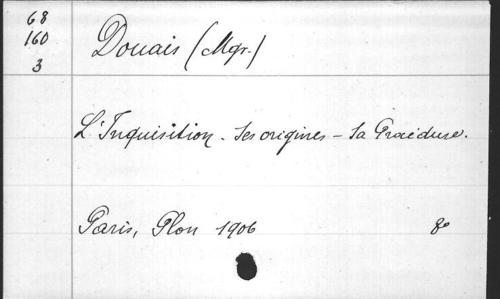 68
160
3
Douais (Mgr.)
L'Inquisition - Ses origines - Sa Procédure.
Paris, Plon 1906 8°